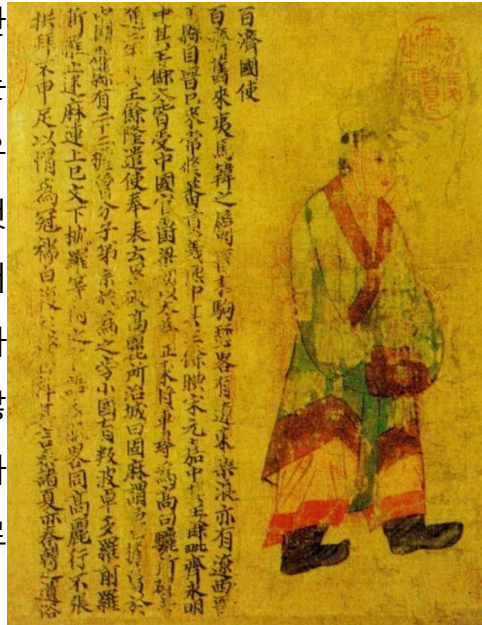 百濟國使
百濟舊來夷馬韓之屬晋末駒驪畧有遼東樂浪亦有遼西晋
平縣自晋已來常修蕃貢義熙中其王餘腆宋元嘉中其王餘毗齊永明
中其王餘太皆受中國官爵梁初以太為征東將軍尋為高句驪所破
二年其王餘隆遣使奉表云累破高麗所治城曰固麻謂邑檐魯於
中國郡縣有二十二檐魯分子弟宗族為之旁小國有叛波卓多羅前羅
斯羅止迷麻連上巳文下枕羅等附之言語衣服畧同高麗行不張
拱拜不申足以帽為冠襦曰複衫袴曰褌其言參諸夏亦秦韓之遺俗